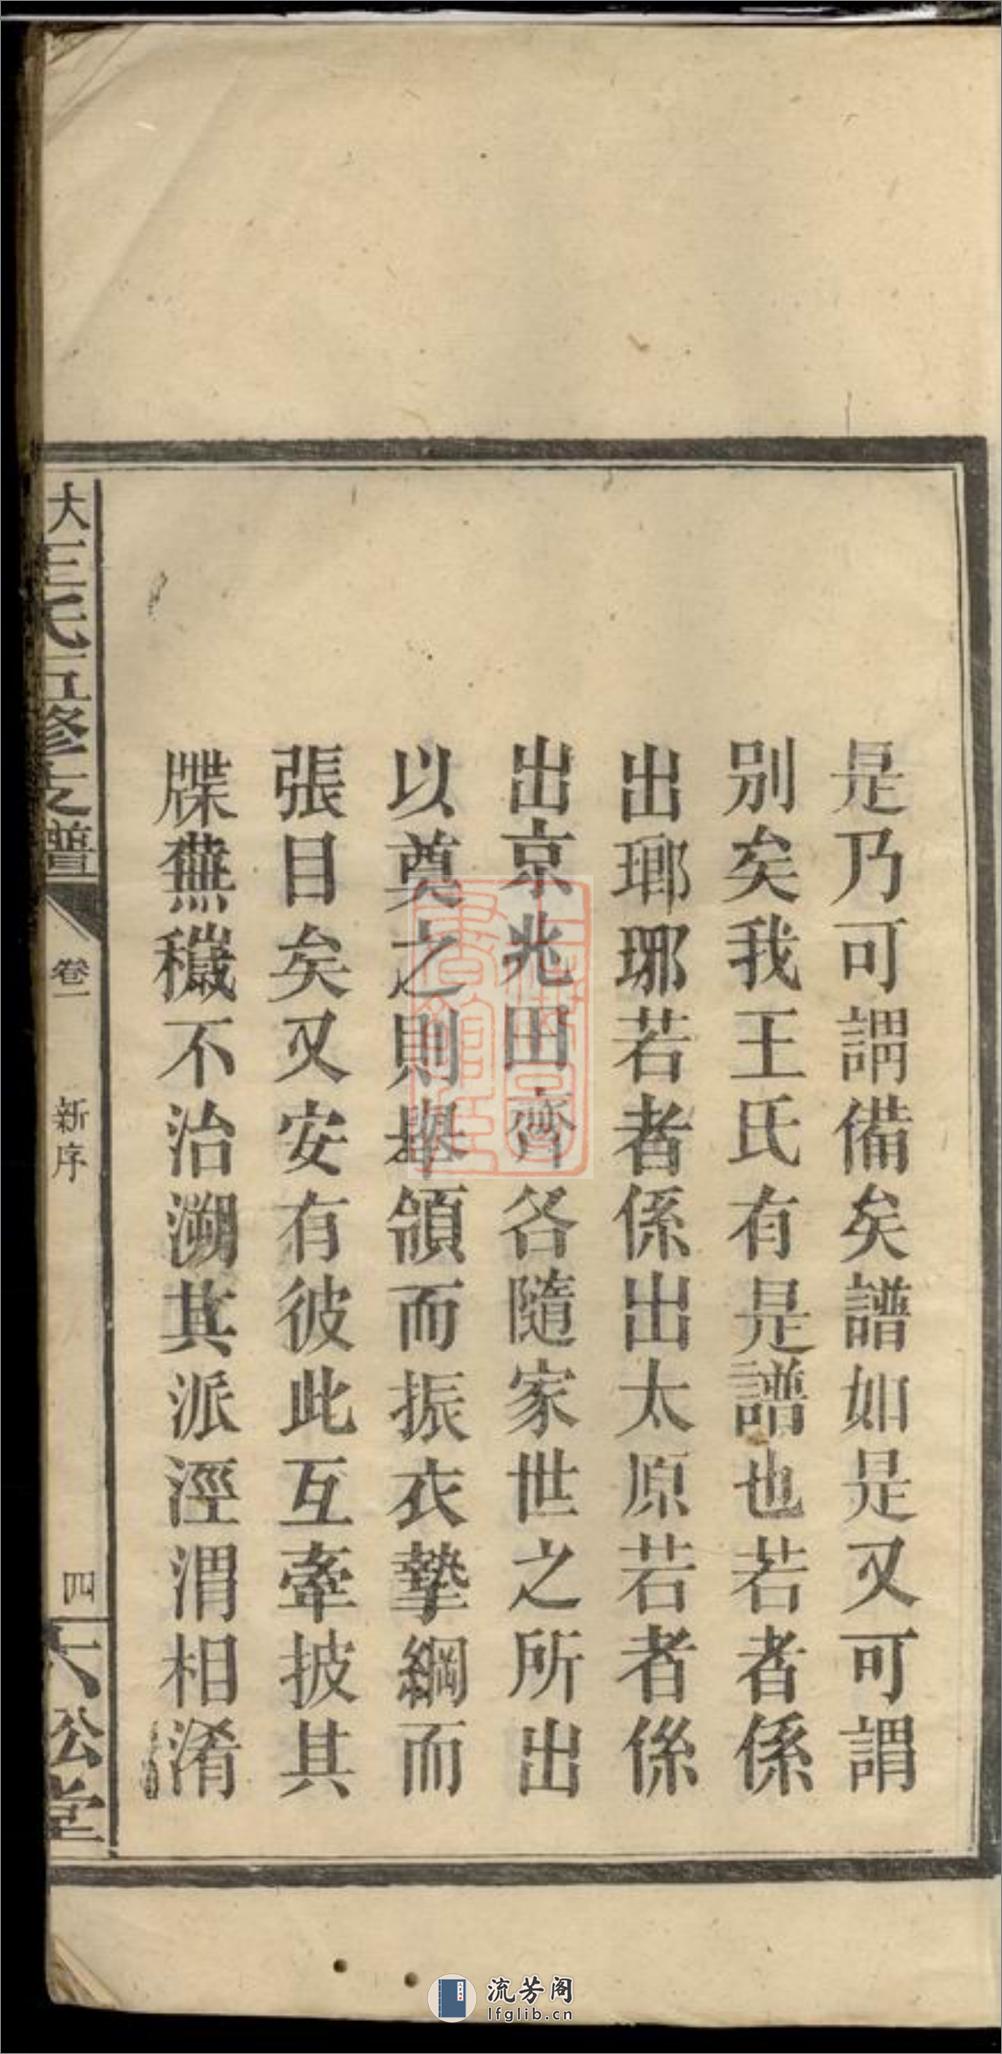 是乃可謂備矣譜如是又可謂
別矣我王氏有是譜也若者係
出瑯琊若者係出太原若者係
出京兆田齊各隨家世之所出
以奠之則舉領而振衣摯綱而
張目矣又安有彼此互牽披其
牒蕪穢不治溯其派涇渭相淆
大王氏五修支譜
卷一
新序
四
六松堂
流芳阁
lfglib.cn